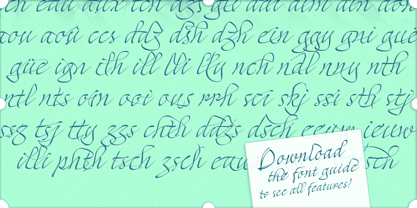 aou aoû ccs ddz dsh dzh ein ggy gni guè
güe ign ilh ill lli lly nch ndl nny nth
ntl nts oin ooi ous rrh sci skj ssi sth stj
ssz tsj tty zgs chth ddzs dsch eeuw ieuw
illi phth tsch zsch eau sch
Download
the font guide
to see all features!